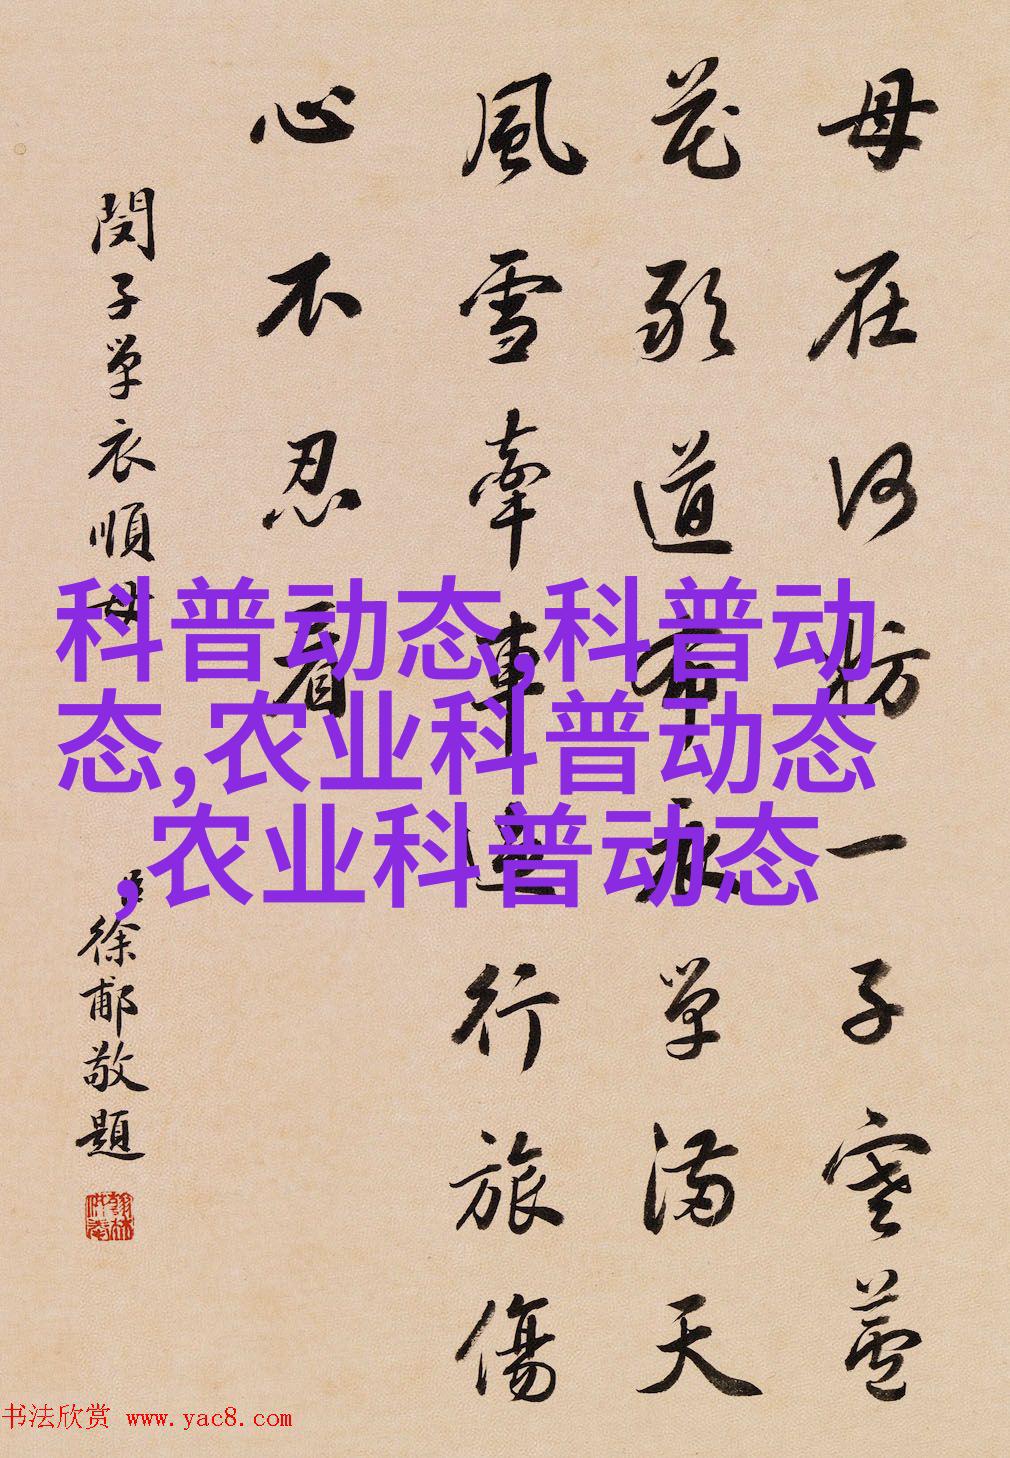 母在何妨一子寒蘆
花敢道布衣單滿天
風雪牽車邊行旅傷
心不忍看
閔子單衣順母
臣徐郙敬題
科普动态,科普动
态,农业科普动态
,农业科普动态
书法欣赏 www.yac8.com